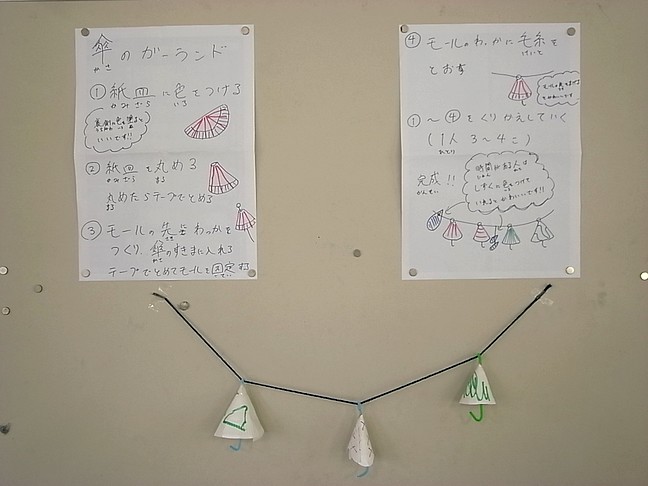 傘のガーランド
かさ
① 紙皿に色をつける
かみざら いろ
いいです!!
② 紙皿を丸める
かみざら まる
丸めたらテープでとめる
まる
③ モールの先にわっかを
つくり、傘のすきまに入れる
かさ い
テープでとめてモールを固定する
こてい
④ モールのわっかに毛糸を
けいと
とおす
①〜④をくりかえしていく
(1人 3〜4こ)
ひとり
完成!!
かんせい
時間がある人は
じかん
しずくに色をつけて
いれるとかわいいです!!